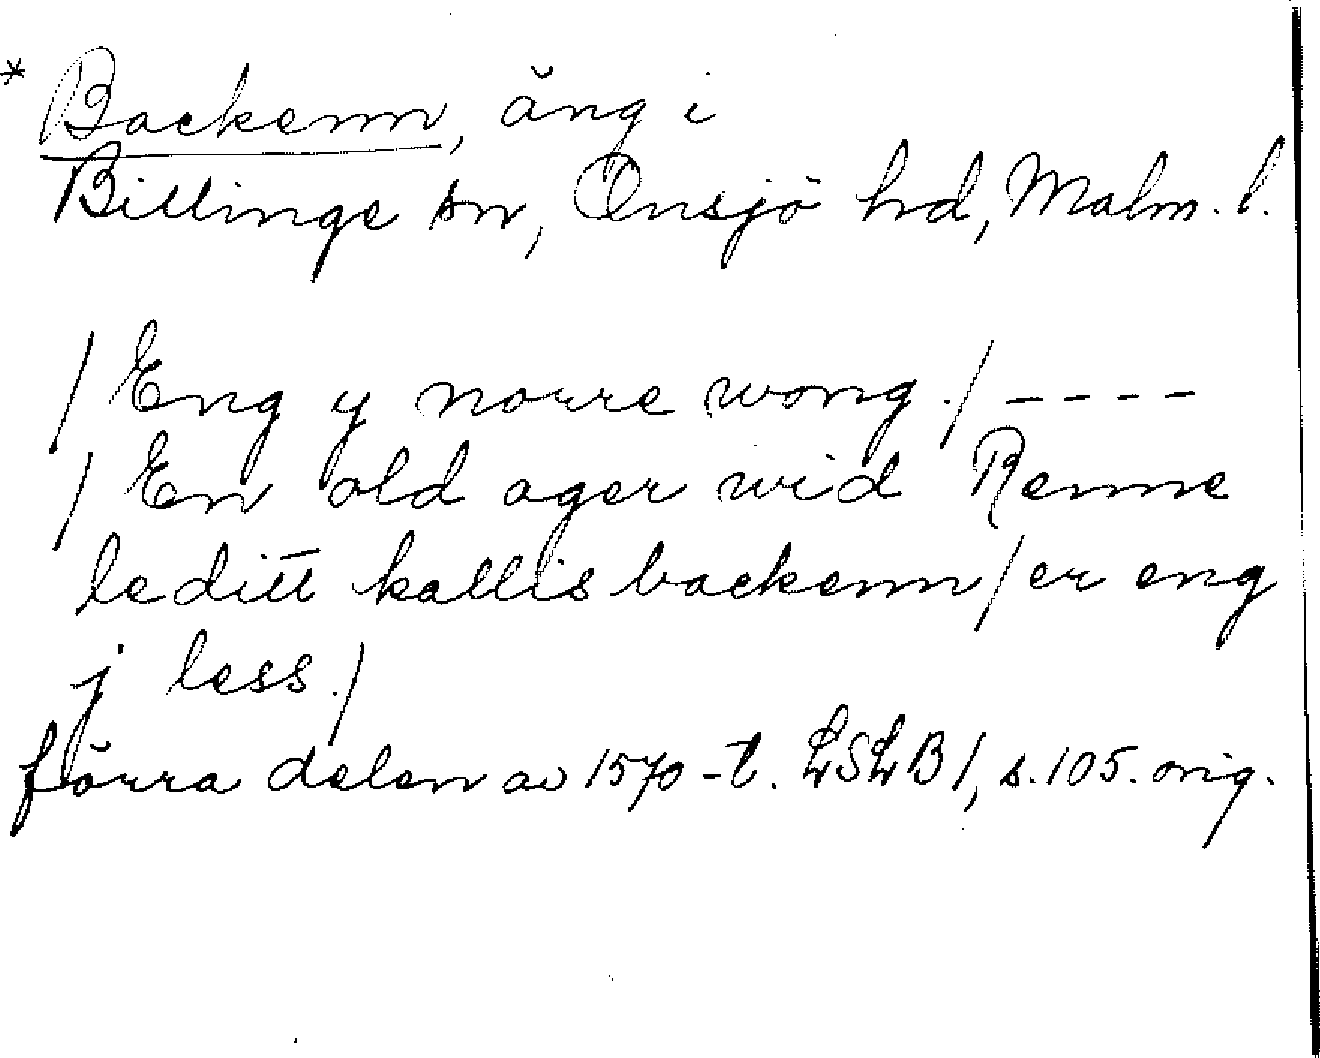 * Backenn, äng i
Billinge sn, Onsjö hd, Malm. l.
/ Eng y norre wong./ ----
/ En old ager wid Renne
leditt kallis backenn/er eng
j less./
förra delen av 1570-t. LSLB 1, s. 105. orig.